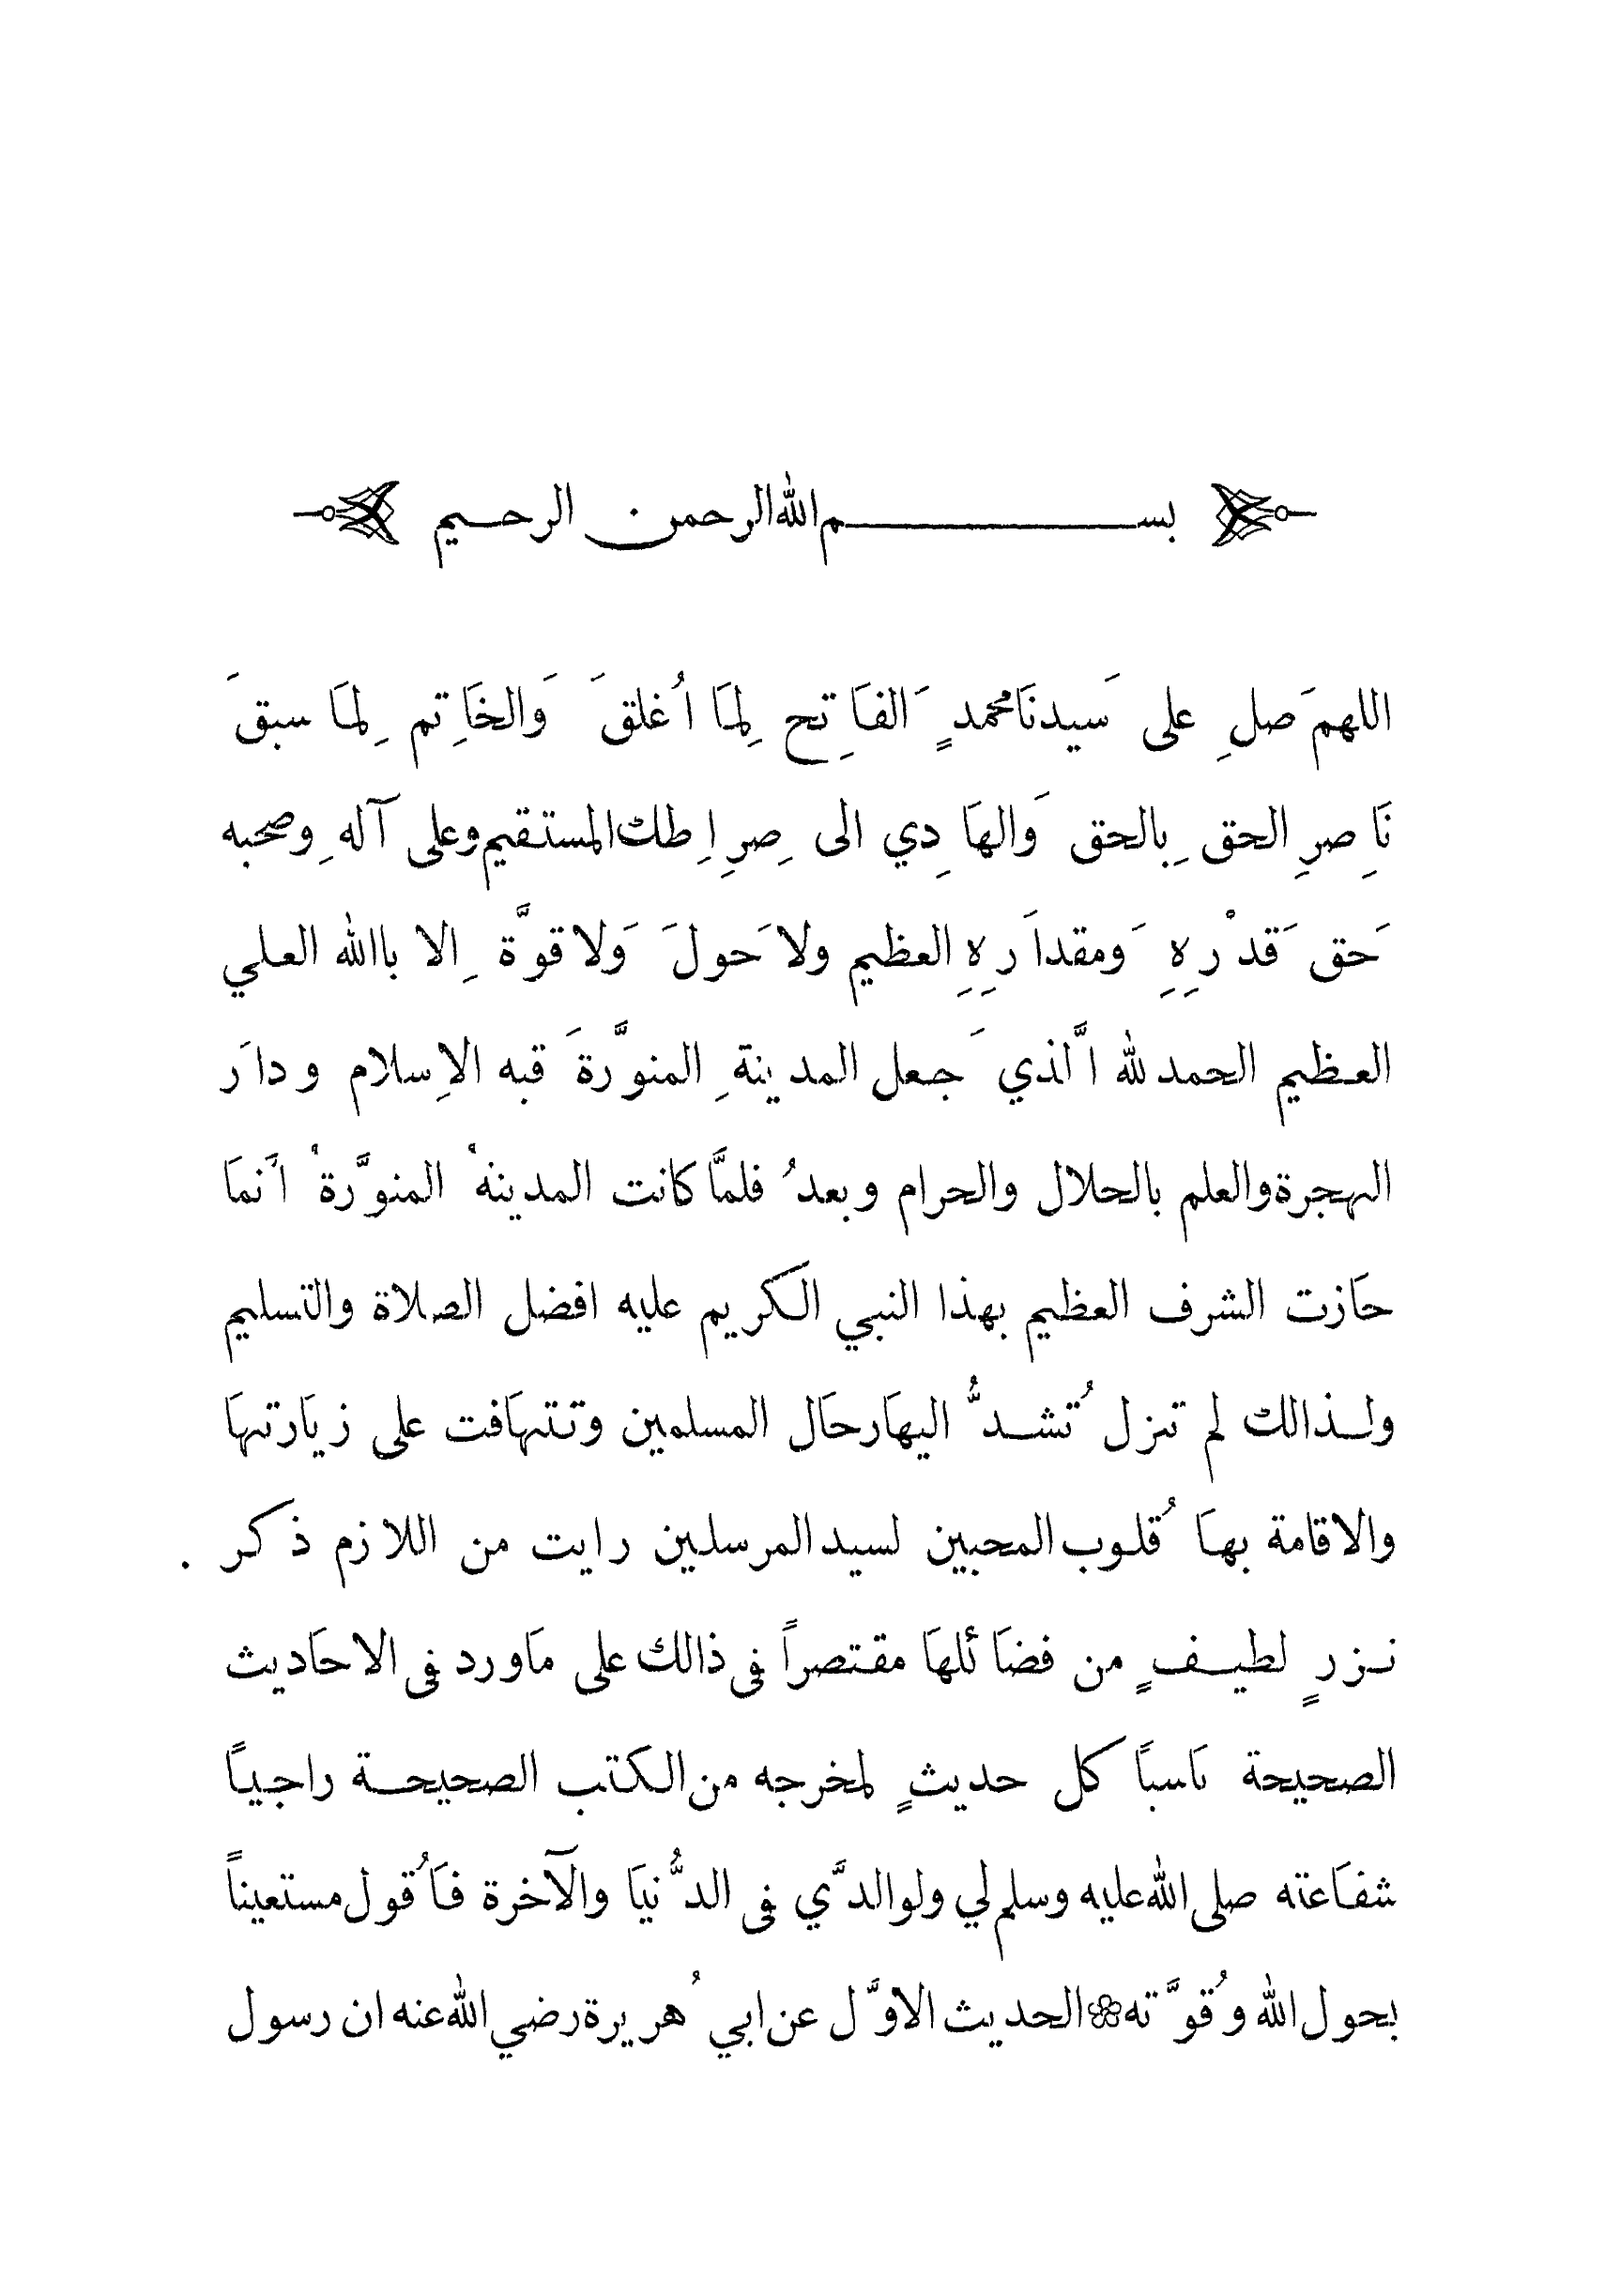 بســــــــــم الله الرحمن الرحــيم
اللهمَ صلِ على سَيدنَا محمدٍ الَفَاتِح لِمَا اُغلقَ وَالخَاتِم لِمَا سبقَ
نَاصِرِ الحق بِالحق وَالهَادِي الى صِرِاطِك المستقيم وعلى آلهِ وصحبه
حَق قَدْرِهِ وَمقداَرِهِ العظيم ولا حَولَ وَلا قوَّة اِلا باالله العلي
العظيم الحمد لله الَّذي جَعل المدينةِ المنوَّرةَ قبه الاِسلام وداَر
الهجرة والعلم بالحلال والحرام وبعدُ فلمَّا كانت المدينهْ المنوَّرةْ اَنمَا
حَازت الشرف العظيم بهذا النبي الكريم عليه افضل الصلاة والتسليم
ولــذالك لم تنزل تُشــدُّ اليهَا رحَال المسلمين وتتهَافت على زيَارتهَا
والاقامة بهَا قُلوب المحبين لسيد المرسلين رايت من اللازم ذكر .
نــزرٍ لطيــفٍ من فضَائلهَا مقتصراً فى ذالك على مَاورد فى الاحَاديث
الصحيحة نَاسباً كل حديثٍ لمخرجه من الكتب الصحيحــة راجيـاً
شفَاعته صلى الله عليه وسلم لي ولوالدَّي فى الدُّنيَا والآخرة فَاُقول مستعيناً
بحول الله وقُوَّته❀الحديث الاوَّل عن ابي هُريرة رضي الله عنه ان رسول